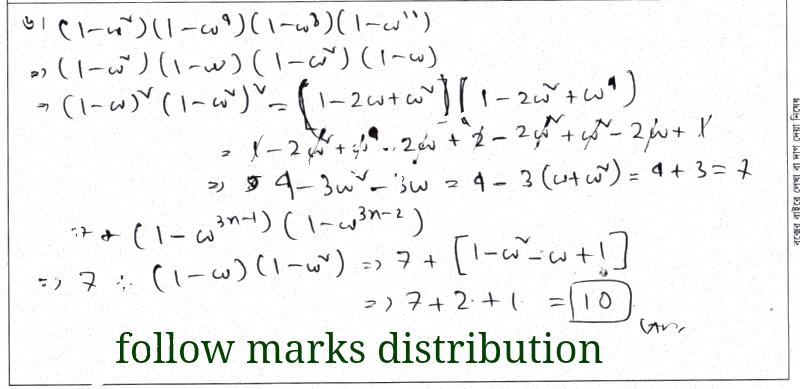 ৬। (1-ω²)(1-ω⁴)(1-ω⁸)(1-ω¹¹)
=> (1-ω²)(1-ω)(1-ω²)(1-ω)
=> (1-ω)²(1-ω²)² = (1-2ω+ω²)(1-2ω²+ω⁴)
=> 4-3ω²-3ω = 4-3(ω+ω²) = 4+3 = 7
(1-ω³ⁿ⁻¹)(1-ω³ⁿ⁻²)
=> 7 ∴ (1-ω)(1-ω²) => 7+[1-ω²-ω+1]
=> 7+2+1 = 10
follow marks distribution
বক্সের বাইরে লেখা বা দাগ দেয়া নিষেধ